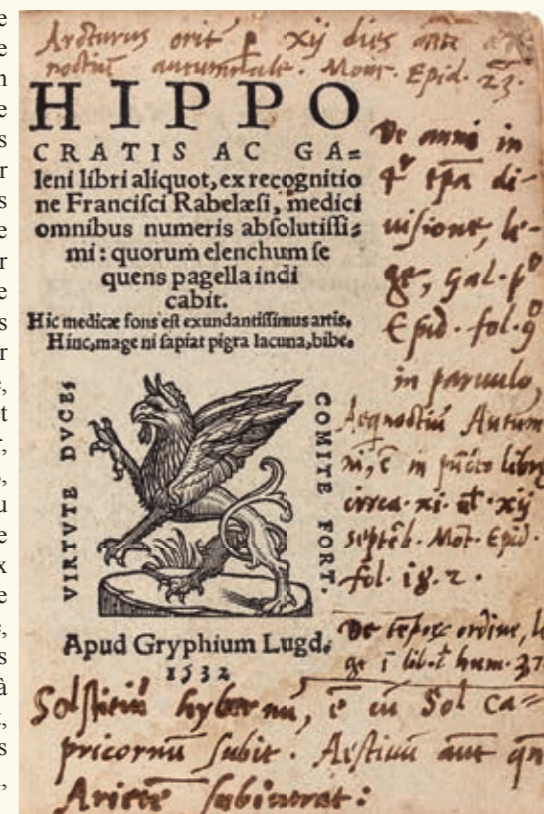 Arcturus orit p xij dies ante
noctiu autumnale. Mon. Epid. 23.
HIPPO
CRATIS AC GA=
leni libri aliquot, ex recognitio
ne Francisci Rabelæsi, medici
omnibus numeris absolutissi=
mi: quorum elenchum se
quens pagella indi
cabit.
Hic medicæ fons est exundantissimus artis,
Hinc, mage ni sapiat pigra lacuna, bibe.
VIRTVTE DVCE,
COMITE FORT.
Apud Gryphium Lugd.
1532
De anni in
di-
uisione, le-
ge, Gal. p°
Epid. fol. 9
in paruulo,
Aeqnoctiu Autum
ni, ē in libry
circa xi. ut xij
septēb. Epid.
fol. 18. 2.
De ordine, le
ge i lib. hum. 37
Solstitiū hybernū, ē cū Sol ca=
pricornū subit. Aestiuū aut qn
Ariete subierat: